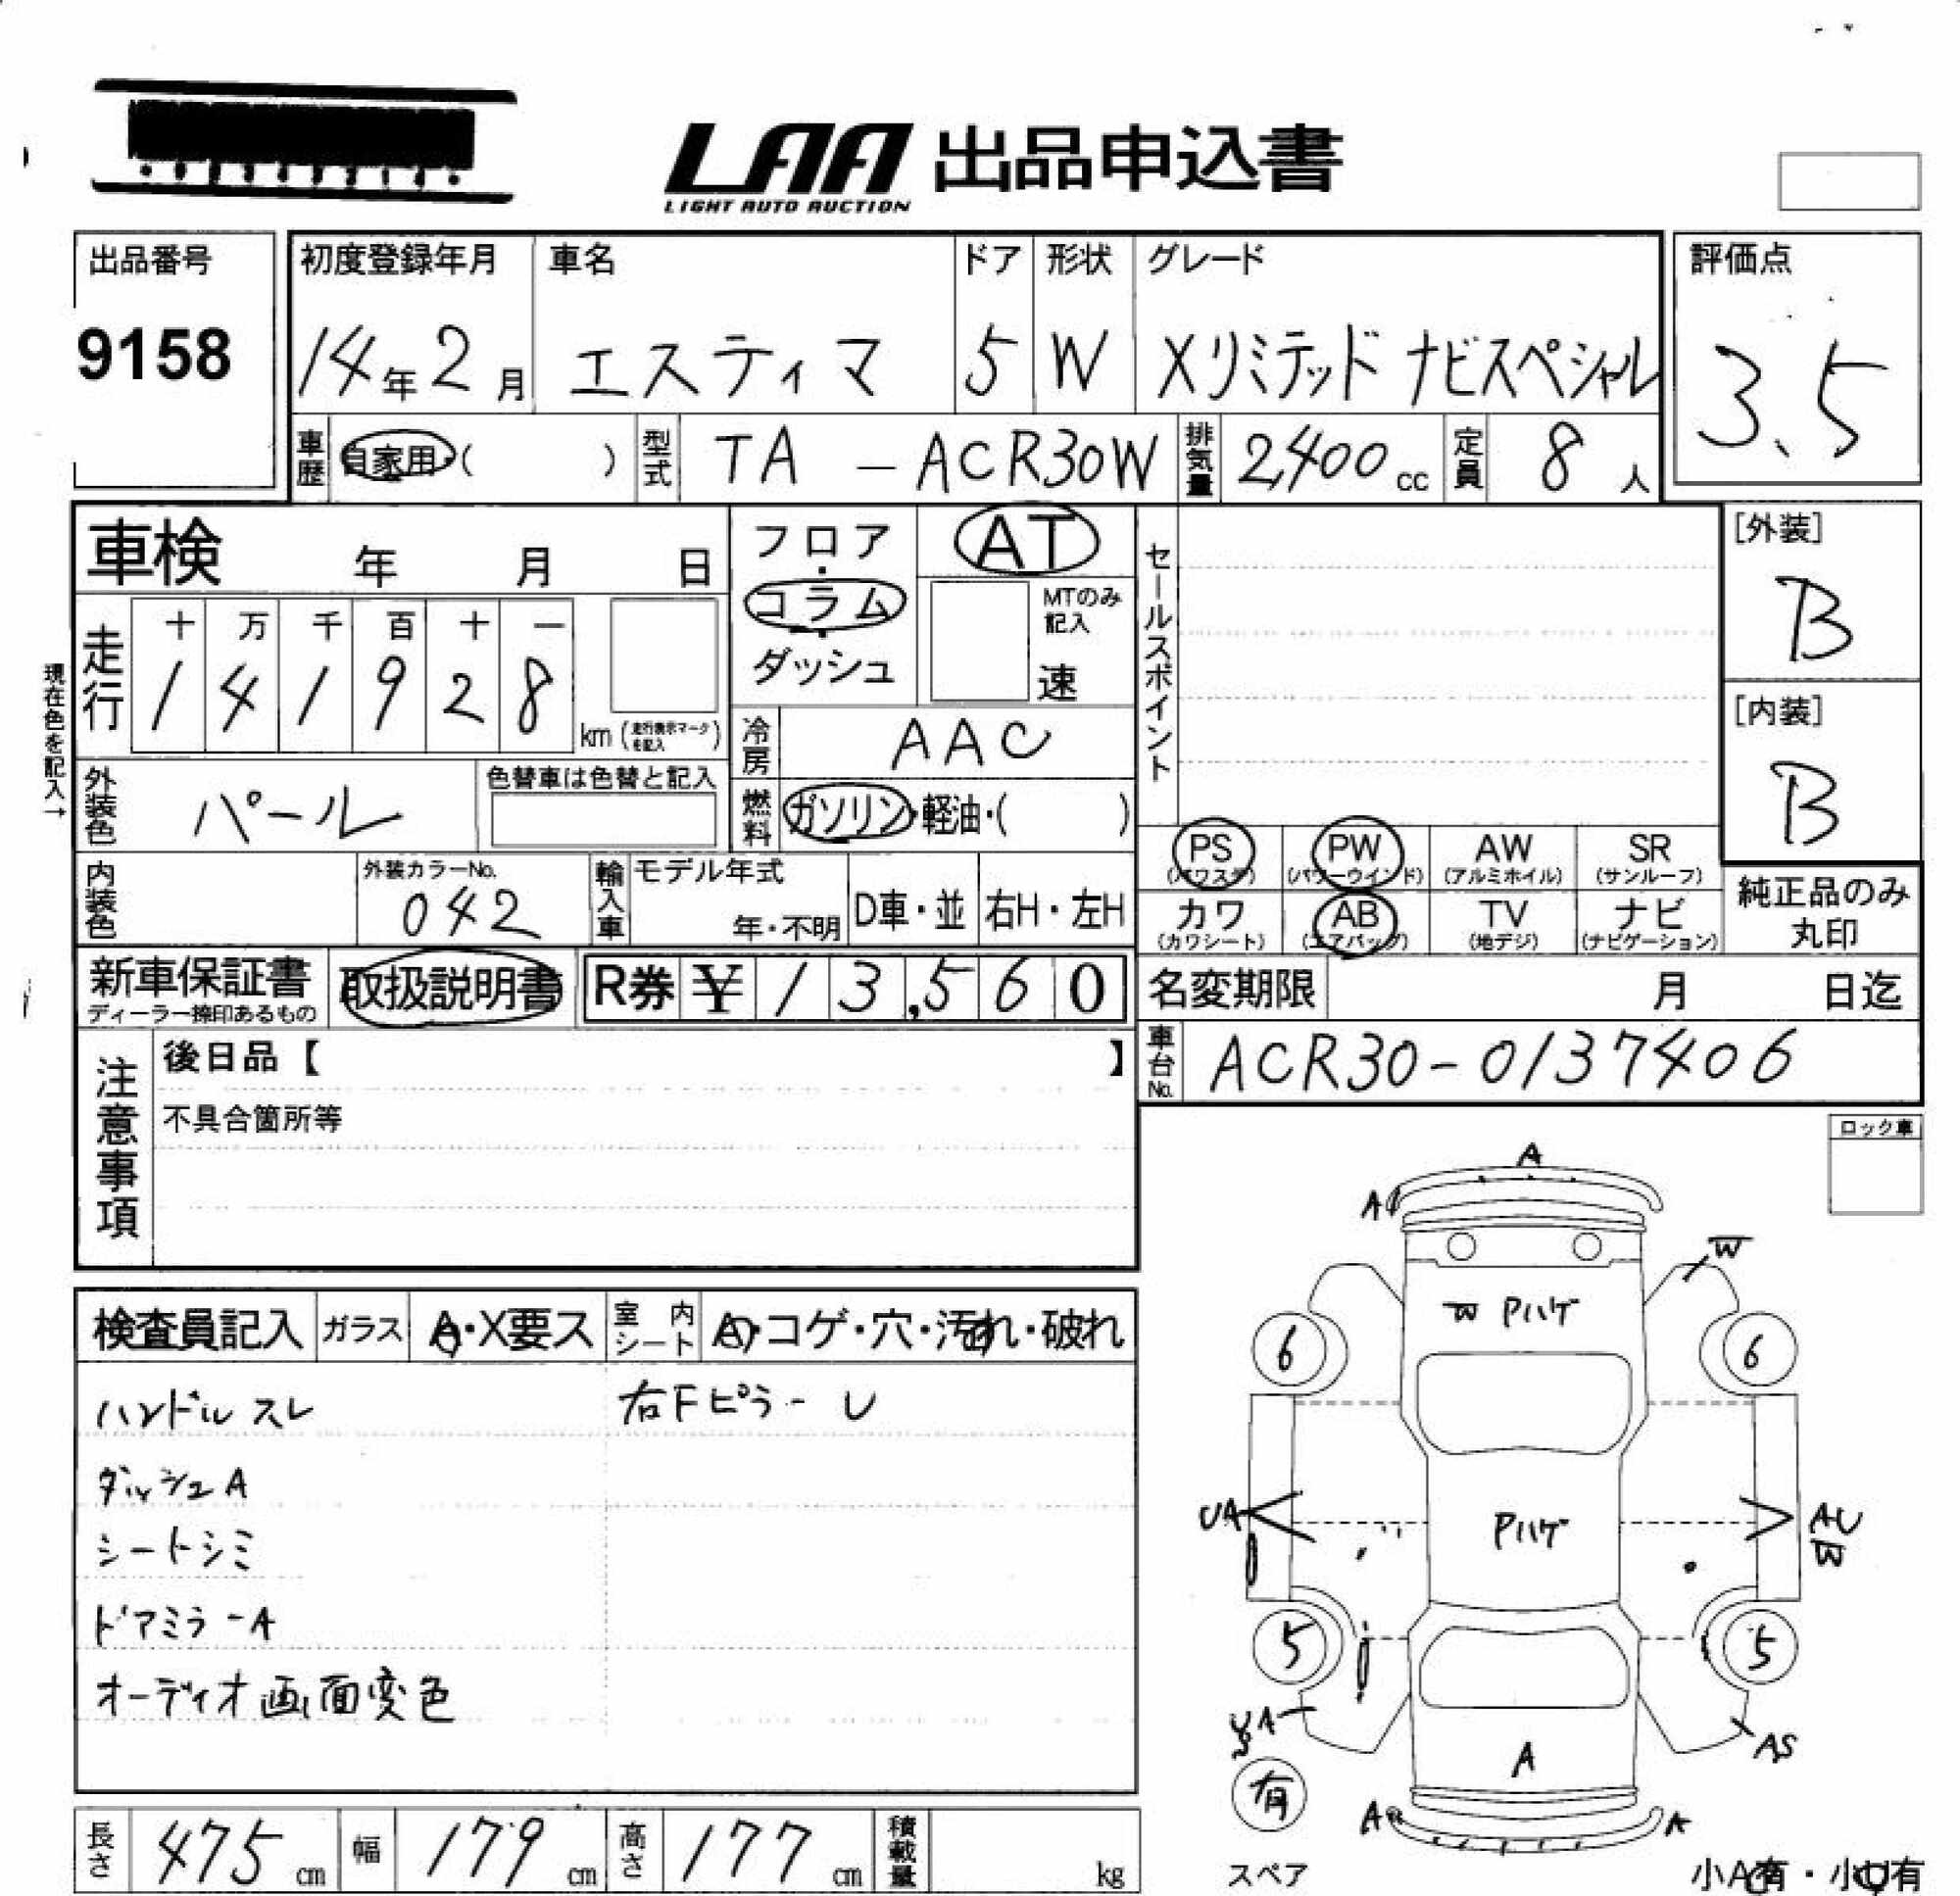 LAA 出品申込書
LIGHT AUTO AUCTION
出品番号
9158
初度登録年月
14年2月
車名
エスティマ
ドア
5
形状
W
グレード
Xリミテッド ナビスペシャル
評価点
3.5
車歴 自家用・( )
型式 TA-ACR30W
排気量 2,400cc
定員 8人
車検 年 月 日
フロア・コラム・ダッシュ
AT
MTのみ記入
速
セールスポイント
[外装]
B
[内装]
B
現在色を記入→
走行
十 万 千 百 十 一
1 4 1 9 2 8
km (走行表示マークを記入)
冷房 AAC
外装色 パール
色替車は色替と記入
燃料 ガソリン・軽油・( )
内装色
外装カラーNo.
042
輸入車
モデル年式
年・不明
D車・並
右H・左H
PS
(パワステ)
PW
(パワーウインド)
AW
(アルミホイル)
SR
(サンルーフ)
カワ
(カワシート)
AB
(エアバッグ)
TV
(地デジ)
ナビ
(ナビゲーション)
純正品のみ
丸印
新車保証書
ディーラー捺印あるもの
取扱説明書
R券 ¥13,560
名変期限 月 日迄
車台No. ACR30-0137406
注意事項
後日品【 】
不具合箇所等
ロック車
検査員記入
ガラス A・X要ス
室内シート A・コゲ・穴・汚れ・破れ
ハンドルスレ
右Fピラー U
ダッシュA
シートシミ
ドアミラーA
オーディオ画面変色
A
A
W
W Pハゲ
6
6
UA
Pハゲ
AU
W
5
5
A
AS
A
有
A
A
スペア
小A有・小U有
長さ 475cm
幅 179cm
高さ 177cm
積載量 kg